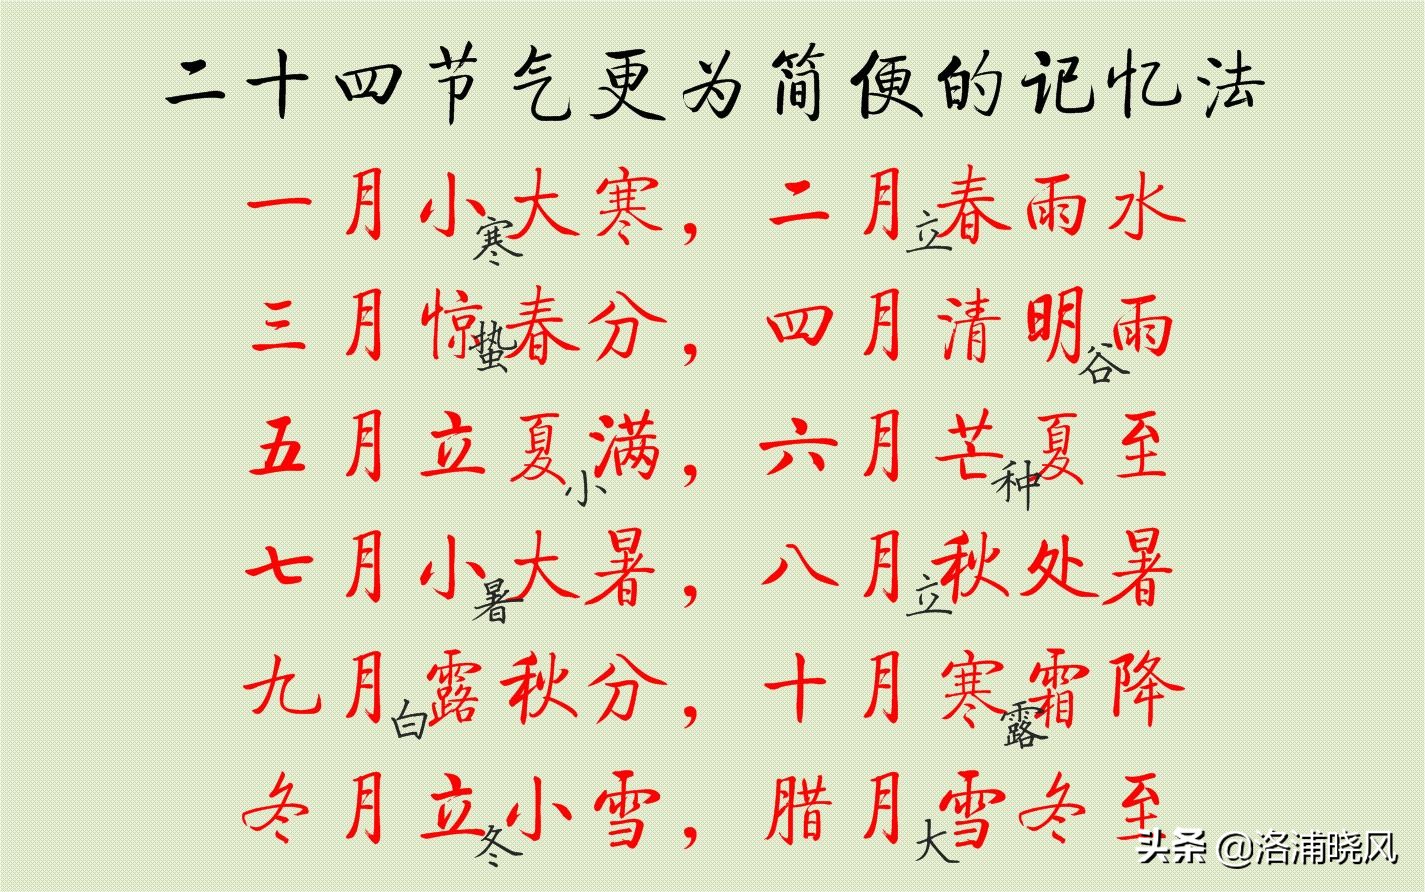 二十四节气更为简便的记忆法
一月小寒大寒，二月立春雨水
三月惊蛰春分，四月清明谷雨
五月立夏小满，六月芒种夏至
七月小暑大暑，八月立秋处暑
九月白露秋分，十月寒露霜降
冬月立冬小雪，腊月大雪冬至
头条 @洛浦晓风